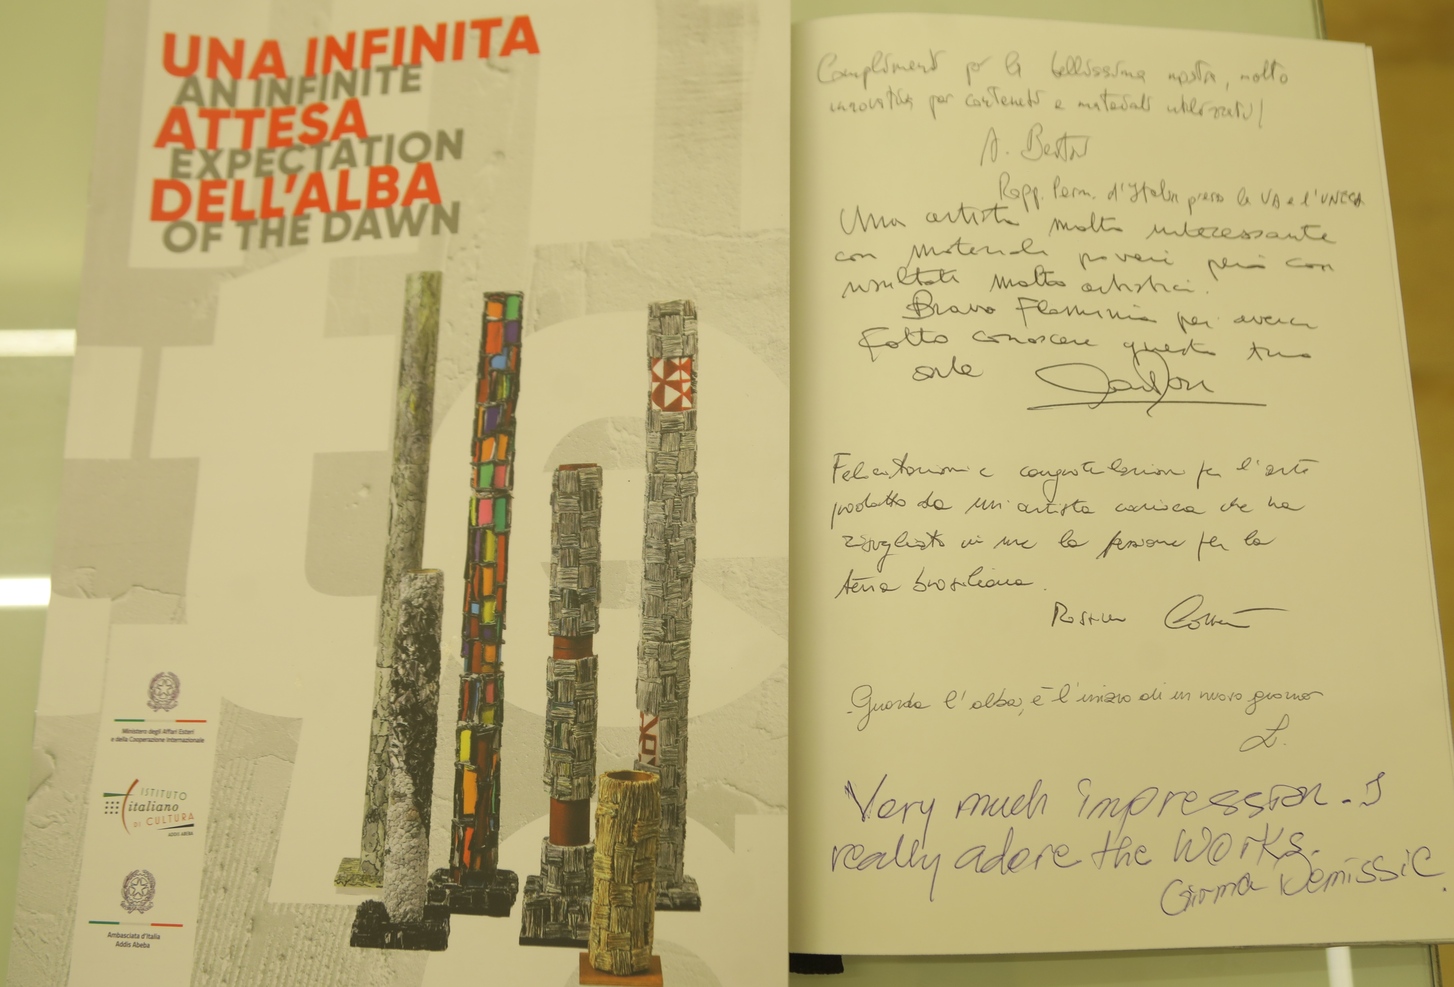 UNA INFINITA
AN INFINITE
ATTESA
EXPECTATION
DELL'ALBA
OF THE DAWN
Ministero degli Affari Esteri
e della Cooperazione Internazionale
ISTITUTO
italiano
DI CULTURA
ADDIS ABEBA
Ambasciata d'Italia
Addis Abeba
Complimenti per la bellissima mostra, molto
innovativa per contenuti e materiali utilizzati!
A.
Rapp. Perm. d'Italia presso la UA e l'UNECA
Una artista molto interessante
con materiali poveri però con
risultati molto artistici.
Bravo Flaminia per averci
fatto conoscere questa tua
arte
Felicitazioni e congratulazioni per l'arte
prodotta da un'artista carioca che ha
risvegliato in me la passione per la
terra brasiliana.
Guarda l'alba, è l'inizio di un nuovo giorno
L.
Very much impression. I
really adore the works.
Girma Demissie.